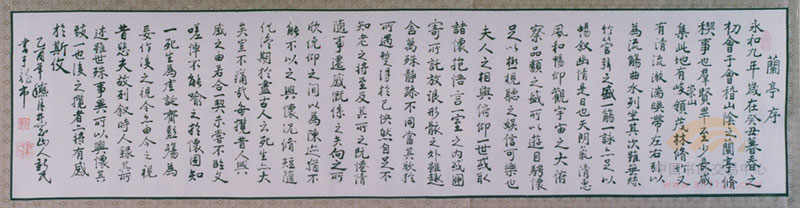 蘭亭序
永和九年歲在癸丑暮春之
初會于會稽山陰之蘭亭脩
禊事也羣賢畢至少長咸
集此地有崇山峻領茂林脩竹又
有清流激湍暎帶左右引以
為流觴曲水列坐其次雖無絲
竹管弦之盛一觴一詠亦足以
暢敘幽情是日也天朗氣清惠
風和暢仰觀宇宙之大俯
察品類之盛所以遊目騁懷
足以極視聽之娛信可樂也
夫人之相與俯仰一世或取
諸懷抱悟言一室之內或因
寄所託放浪形骸之外雖趣
舍萬殊靜躁不同當其欣於
所遇暫得於己快然自足不
知老之將至及其所之既惓情
隨事遷感慨係之矣向之所
欣俛仰之間以為陳迹猶不
能不以之興懷況脩短隨
化終期於盡古人云死生亦大
矣豈不痛哉每攬昔人興
感之由若合一契未嘗不臨文
嗟悼不能喻之於懷固知
一死生為虛誕齊彭殤為
妄作後之視今亦由今之視
昔悲夫故列敘時人錄其所
述雖世殊事異所以興懷其
致一也後之攬者亦將有感
於斯文
乙酉年
書于
中国书 交易中心